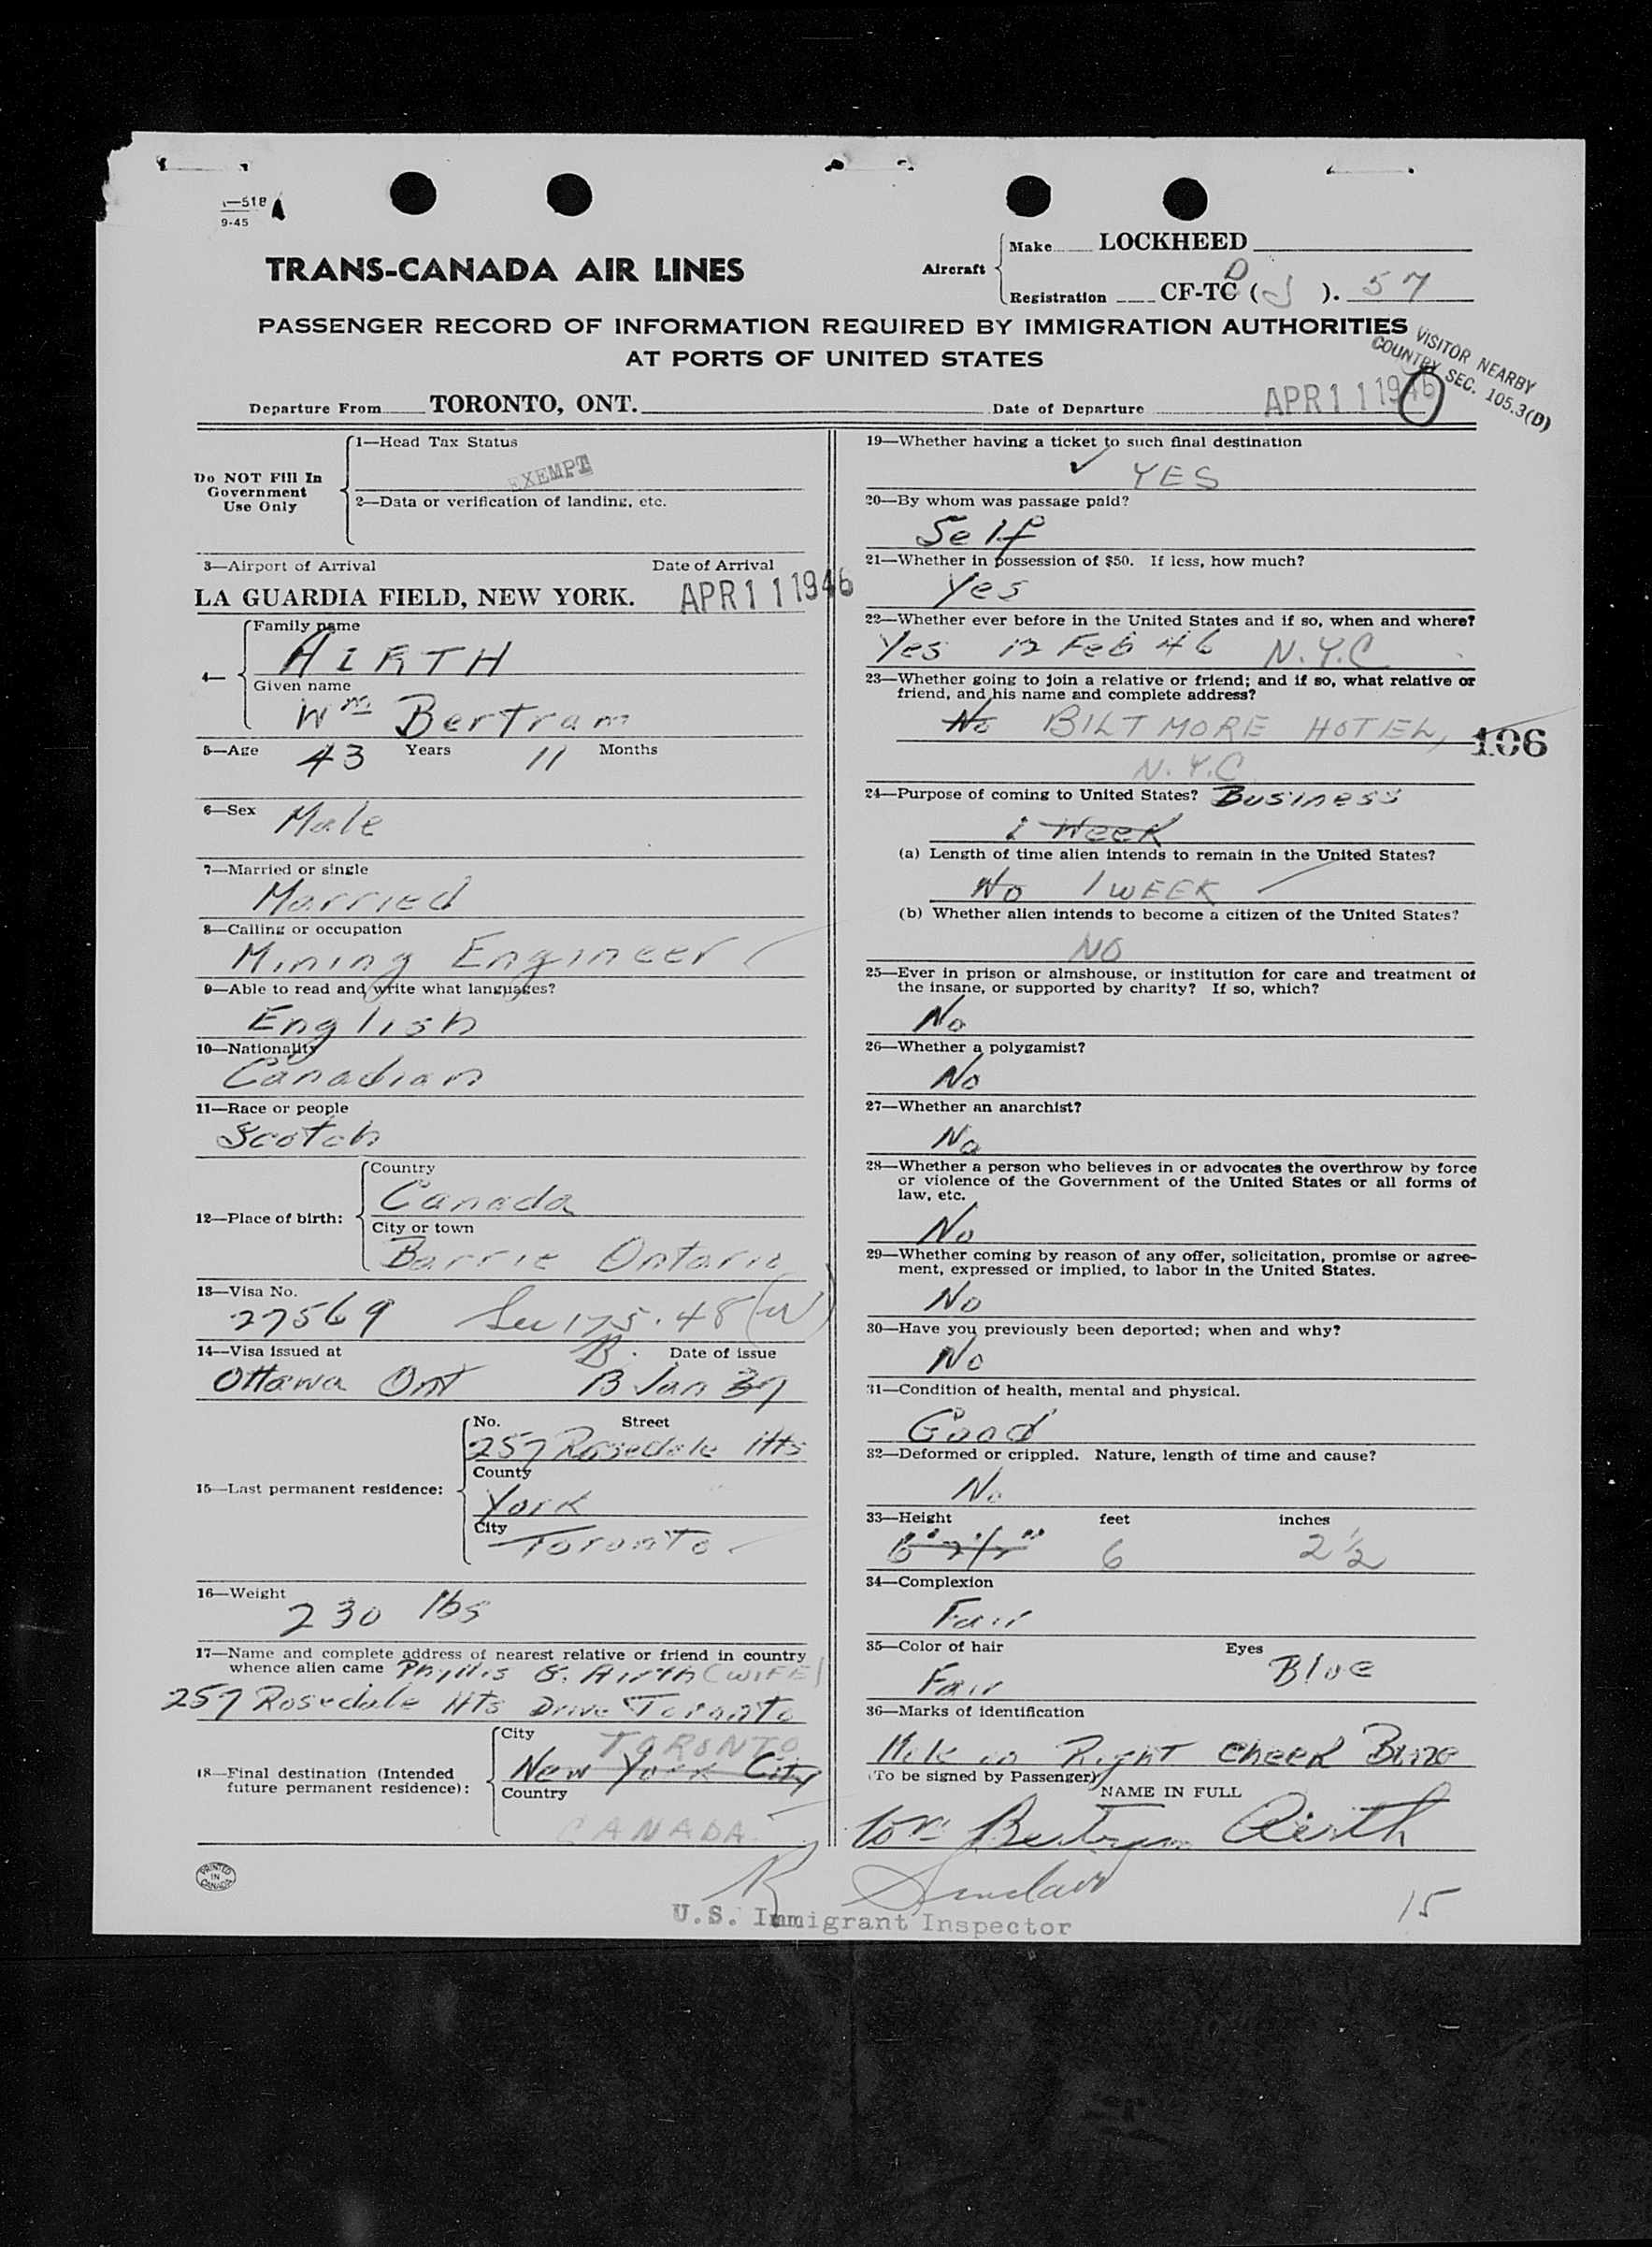 —518 A
9-45
TRANS-CANADA AIR LINES
Aircraft
Make LOCKHEED
Registration CF-TC D ( J ). 57
PASSENGER RECORD OF INFORMATION REQUIRED BY IMMIGRATION AUTHORITIES
AT PORTS OF UNITED STATES
VISITOR NEARBY
COUNTRY SEC. 105.3(D)
Departure From TORONTO, ONT. Date of Departure APR 11 1946
Do NOT Fill In
Government
Use Only
1—Head Tax Status
EXEMPT
2—Data or verification of landing, etc.
3—Airport of Arrival Date of Arrival
LA GUARDIA FIELD, NEW YORK. APR 11 1946
4—
Family name
AIRTH
Given name
Wm Bertram
5—Age 43 Years 11 Months
6—Sex Male
7—Married or single
Married
8—Calling or occupation
Mining Engineer
9—Able to read and write what languages?
English
10—Nationality
Canadian
11—Race or people
Scotch
12—Place of birth:
Country
Canada
City or town
Barrie Ontario
13—Visa No.
27569 Sec 175.48 (W)
14—Visa issued at B. Date of issue
Ottawa Ont 13 Jan 37
15—Last permanent residence:
No. Street
257 Rosedale Hts
County
York
City
Toronto
16—Weight
230 lbs
17—Name and complete address of nearest relative or friend in country
whence alien came Phyllis G. Airth (WIFE)
257 Rosedale Hts Drive Toronto
18—Final destination (Intended
future permanent residence):
City
TORONTO
New York City
Country
CANADA
PRINTED
IN
CANADA
19—Whether having a ticket to such final destination
YES
20—By whom was passage paid?
Self
21—Whether in possession of $50. If less, how much?
Yes
22—Whether ever before in the United States and if so, when and where?
Yes 12 Feb 46 N.Y.C
23—Whether going to join a relative or friend; and if so, what relative or
friend, and his name and complete address?
No BILTMORE HOTEL,
106
N.Y.C.
24—Purpose of coming to United States? Business
1 Week
(a) Length of time alien intends to remain in the United States?
No 1 WEEK
(b) Whether alien intends to become a citizen of the United States?
NO
25—Ever in prison or almshouse, or institution for care and treatment of
the insane, or supported by charity? If so, which?
No
26—Whether a polygamist?
No
27—Whether an anarchist?
No
28—Whether a person who believes in or advocates the overthrow by force
or violence of the Government of the United States or all forms of
law, etc.
No
29—Whether coming by reason of any offer, solicitation, promise or agree-
ment, expressed or implied, to labor in the United States.
No
30—Have you previously been deported; when and why?
No
31—Condition of health, mental and physical.
Good
32—Deformed or crippled. Nature, length of time and cause?
No
33—Height feet inches
6' 2 1/2" 6 2 1/2
34—Complexion
Fair
35—Color of hair Eyes
Fair Blue
36—Marks of identification
Mole on Right cheek Bone
(To be signed by Passenger)
NAME IN FULL
Wm Bertram Airth
R Sinclair
U.S. Immigrant Inspector
15